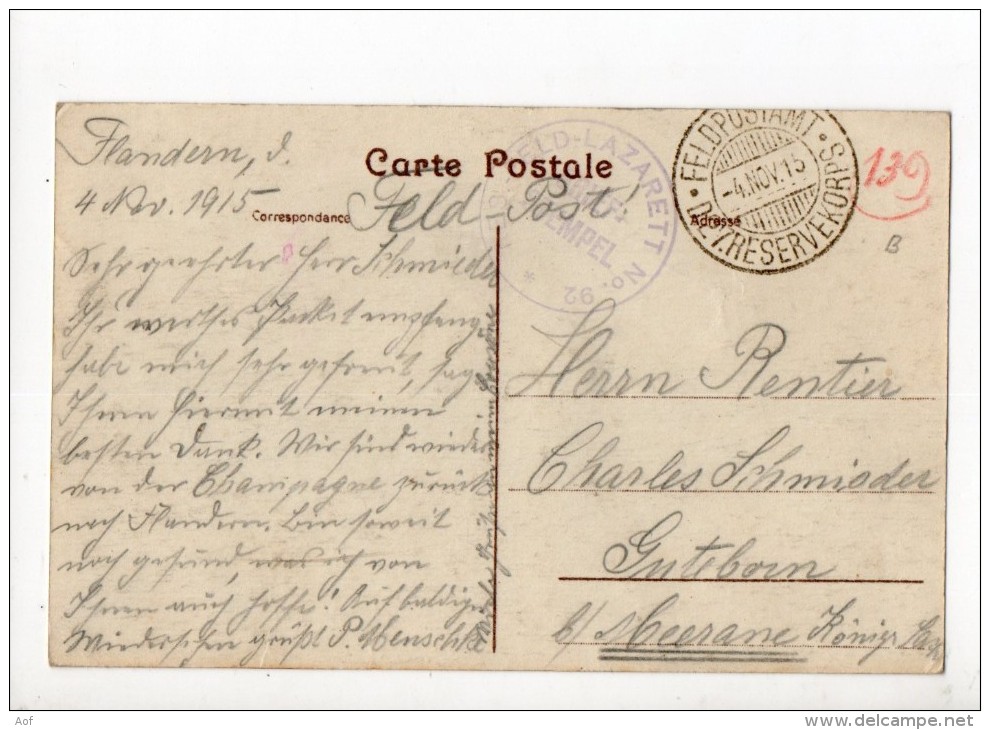 Flandern, d.
4 Nov. 1915
Carte Postale
Feld-Post!
Correspondance
Adresse
FELD-LAZARETT No. 92
FELDPOSTAMT
-4.NOV.15
D. 27. RESERVEKORPS
139
B
Sehr geehrter Herr Schmieder
Ihr werthes Packet empfang
habe mich sehr gefreut, sag
Ihnen hiermit meinen
besten Dank. Wir sind wieder
von der Champagne zurück
nach Flandern. Bin soweit
noch gesund, was ich von
Ihnen auch hoffe! Auf baldiges
Wiedersehen grüßt P. Menschke
Herrn Rentier
Charles Schmieder
Guteborn
b/ Meerane Königr. Sachs
Aof
delcampe.net